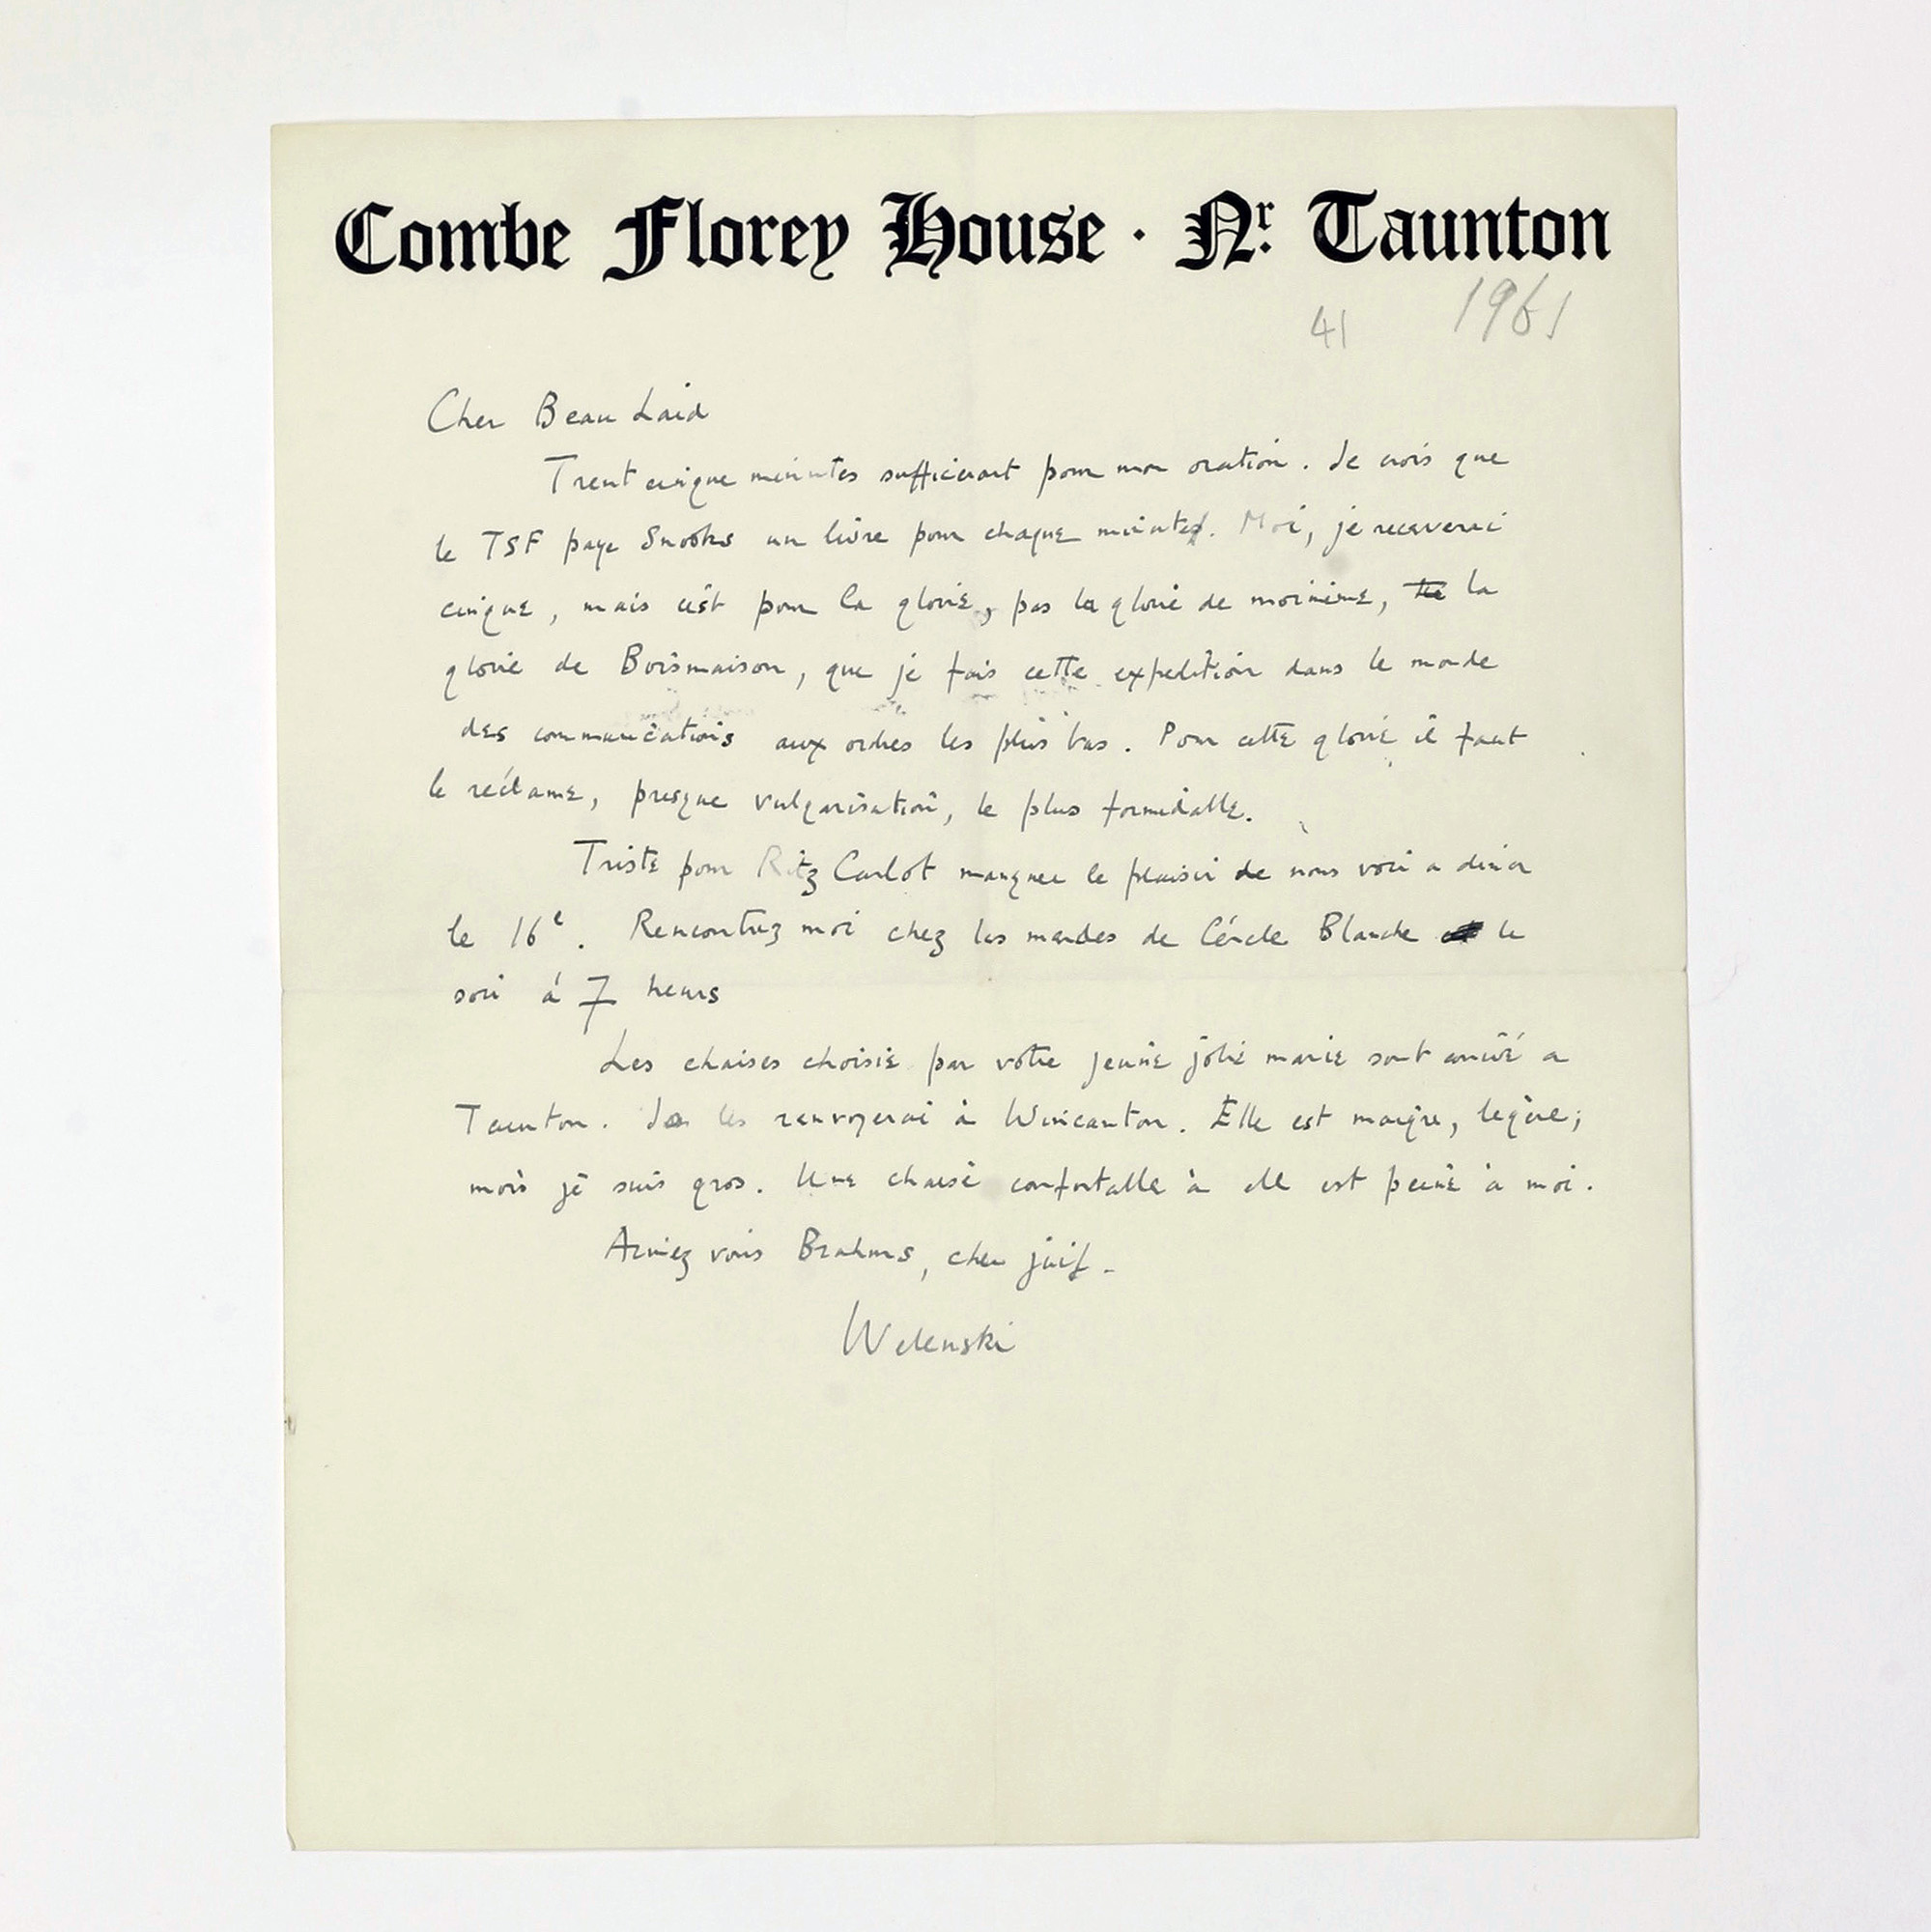 Combe Florey House · Nr. Taunton
41 1961
Cher Beau Laid
Trent cinque minutes sufficieront pour mon oration. Je crois que
le TSF paye Snooks un livre pour chaque minute. Moi, je receverai
cinque, mais c'est pour la gloire, pas la gloire de moimeme, la
gloire de Boismaison, que je fais cette expedition dans le monde
des communications aux ordres les plus bas. Pour cette gloire il faut
le réclame, presque vulgarisation, le plus formidable.
Triste pour Ritz Carlot manquer le plaisir de nous voir a diner
le 16e. Rencontrez moi chez les de Cércle Blanche le
soir á 7 heurs
Les chaises choisie par votre jeune jolie marie sont arrivé a
Taunton. Je les renvoyerai à Wincanton. Elle est maigre, legère;
mois je suis gros. Une chaise confortable à elle est peine à moi.
Aimez vous Brahms, cher juif.
Welenski